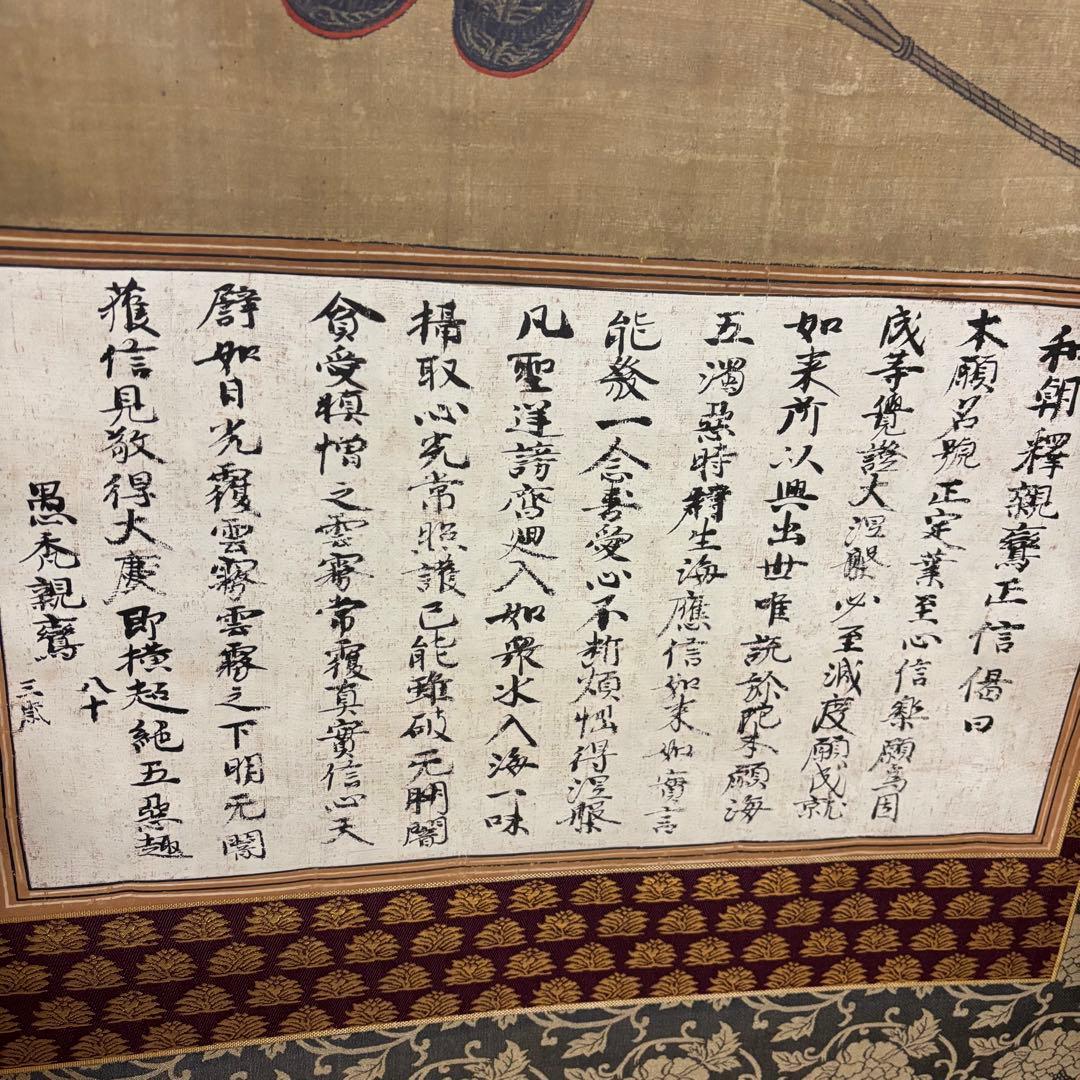 和朝釋親鸞正信偈曰
本願名號正定業至心信樂願爲因
成等覺證大涅槃必至滅度願成就
如来所以興出世唯説弥陀本願海
五濁惡時群生海應信如来如實言
能發一念喜愛心不断煩惱得涅槃
凡聖逆謗齊廻入如衆水入海一味
攝取心光常照護已能雖破无明闇
貪愛瞋憎之雲霧常覆真實信心天
譬如日光覆雲霧雲霧之下明无闇
獲信見敬得大慶即横超絶五惡趣
愚禿親鸞
八十
三歳